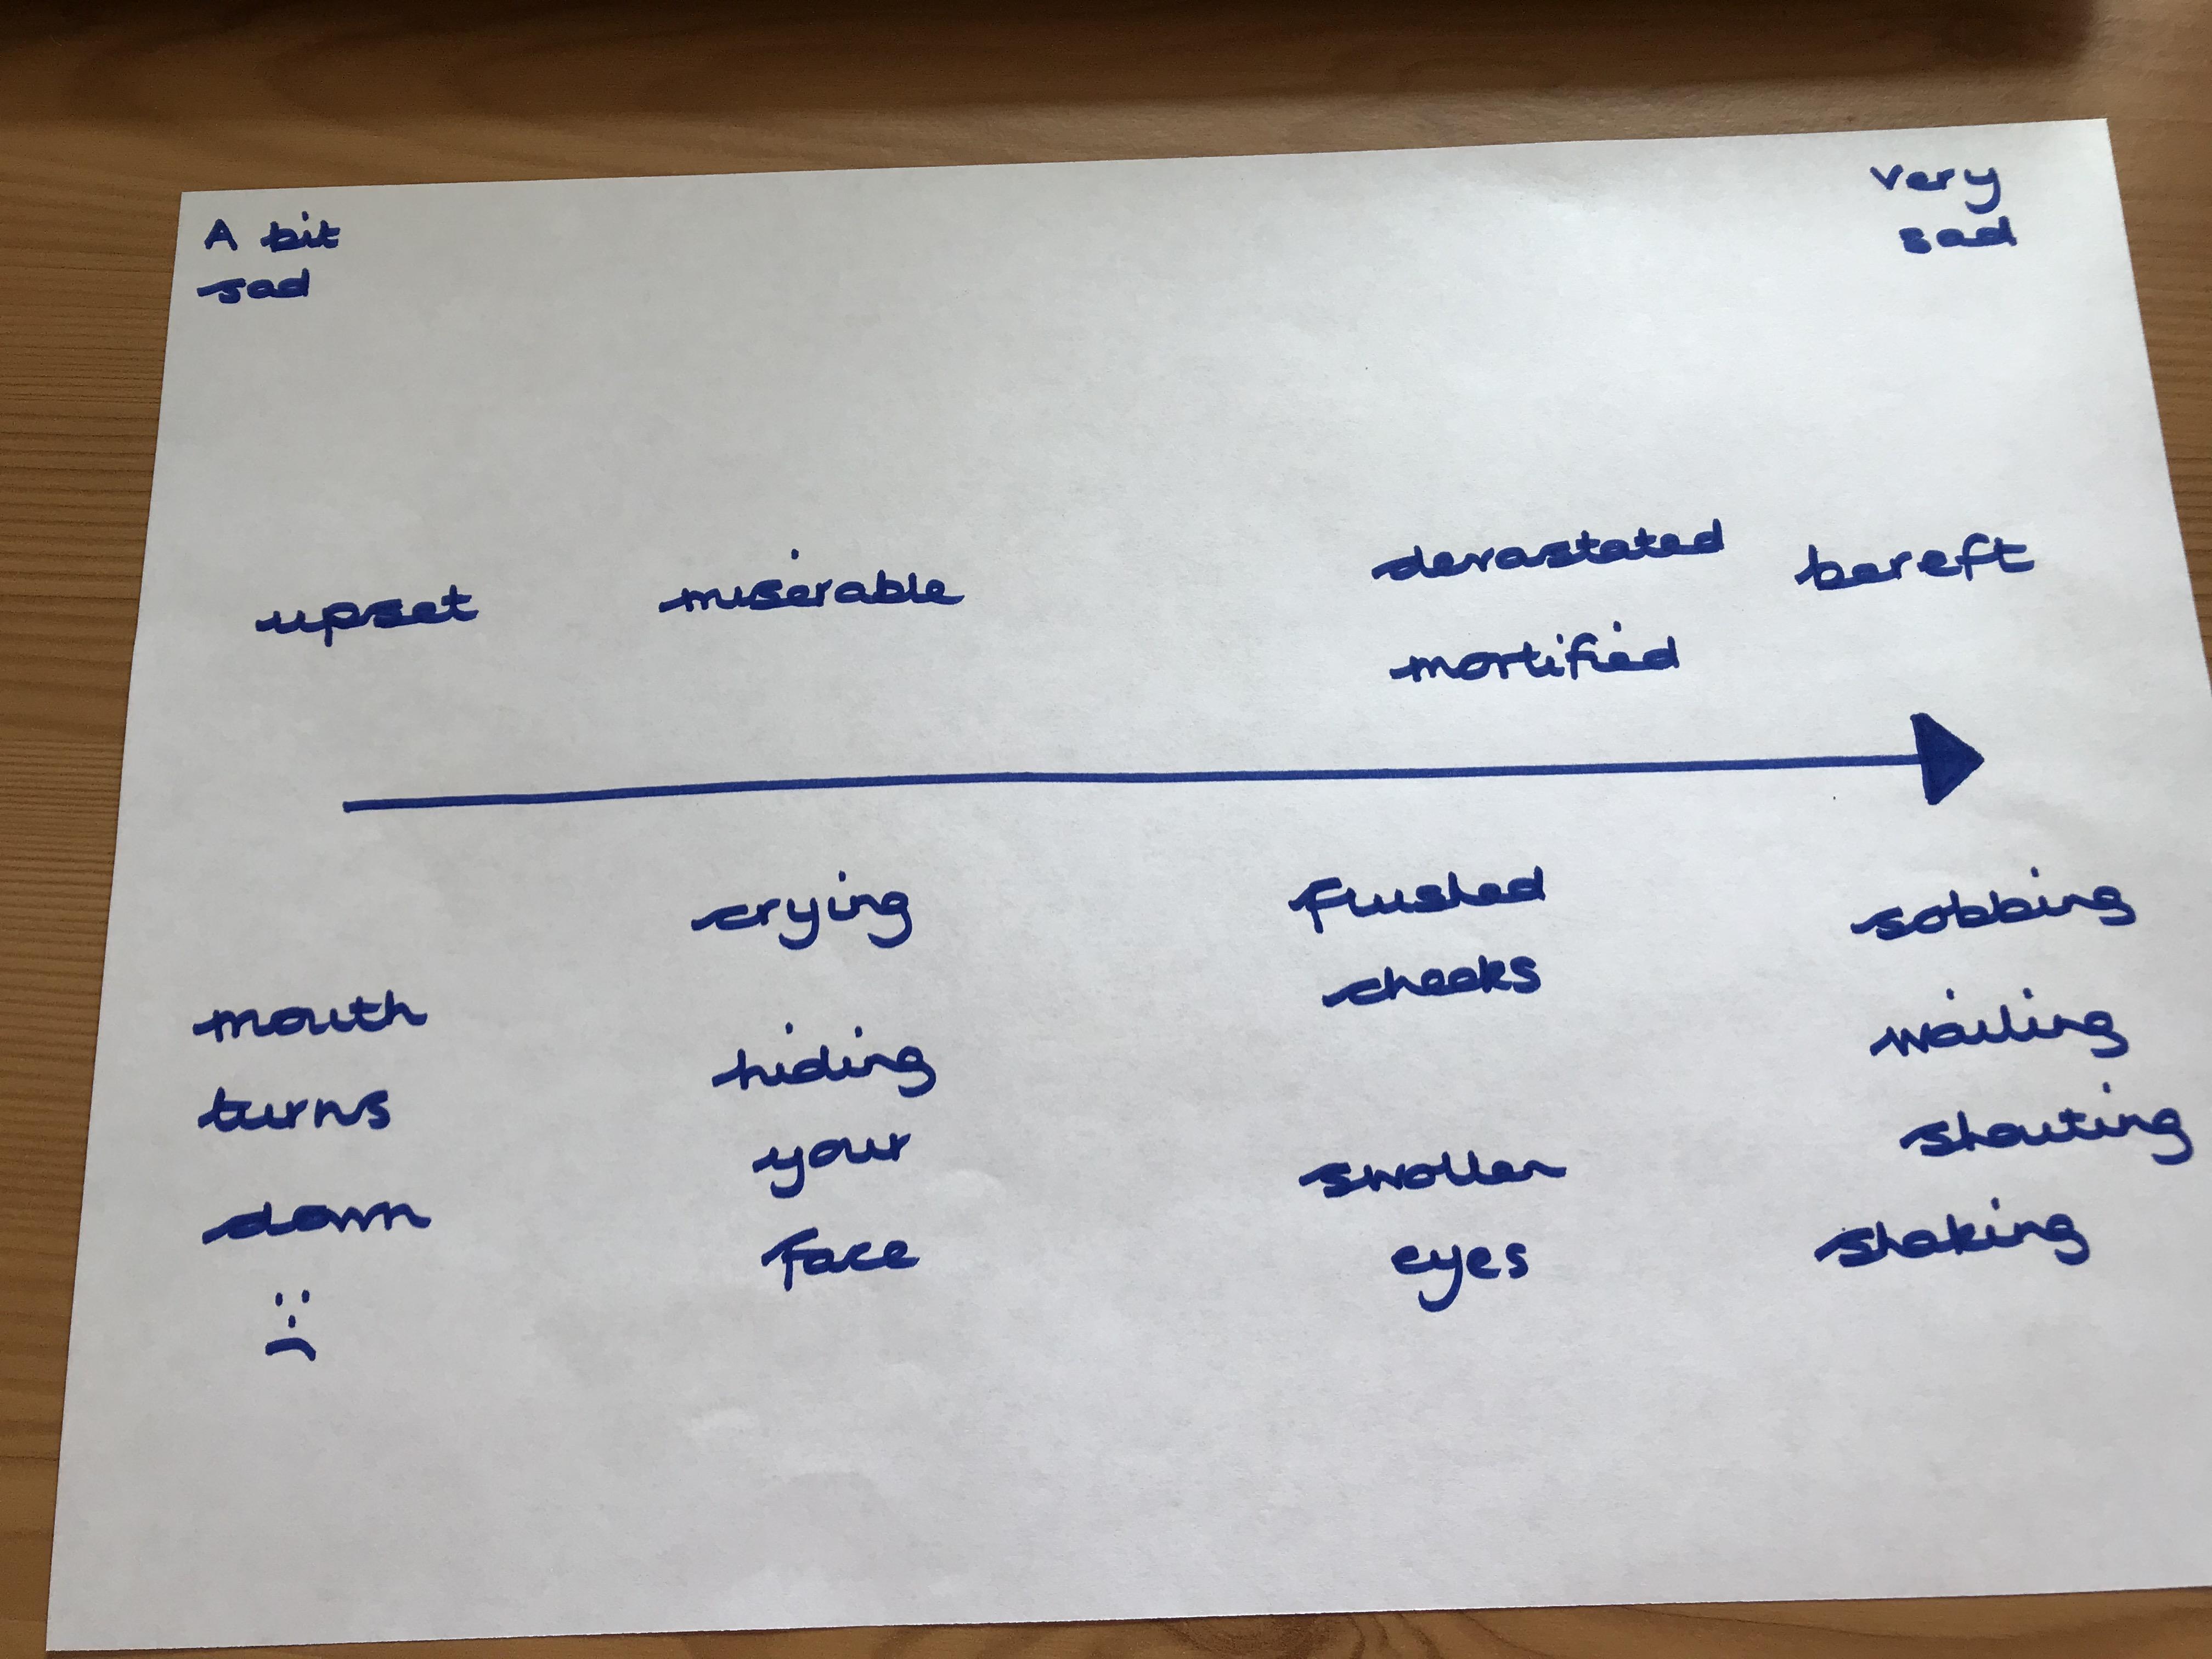 A bit
sad
Very
sad
upset
miserable
devastated
mortified
bereft
mouth
turns
down
crying
hiding
your
face
flushed
cheeks
swollen
eyes
sobbing
wailing
shouting
shaking